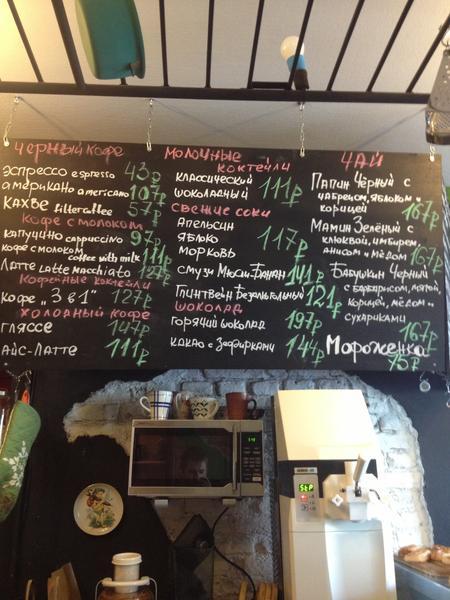 Черный кофе
эспрессо espresso 43р
американо americano 107р
кахве filter coffee 57р
кофе с молоком
капуччино cappuccino 97р
кофе с молоком coffee with milk 111р
латте Latte macchiato 127р
кофейные коктейли
кофе „3 в 1" 127р
холодный кофе
глясse 147р
айс-латте 111р
Молочные коктейли
классический
шоколадный 111р
свежие соки
апельсин
яблоко 117р
морковь
смузи Мюсли-Банан 141р
Глинтвейн Безалкогольный 121р
шоколад
горячий шоколад 197р
какао с зефирками 144р
Чай
Папин Чёрный с
чабрецом, яблоком и
корицей 167р
Мамин Зелёный с
клюквой, имбирем,
анисом и мёдом 167р
Бабушкин Черный
с барбарисом, мятой,
корицей, мёдом и
сухариками 167р
Мороженко 75р
StP